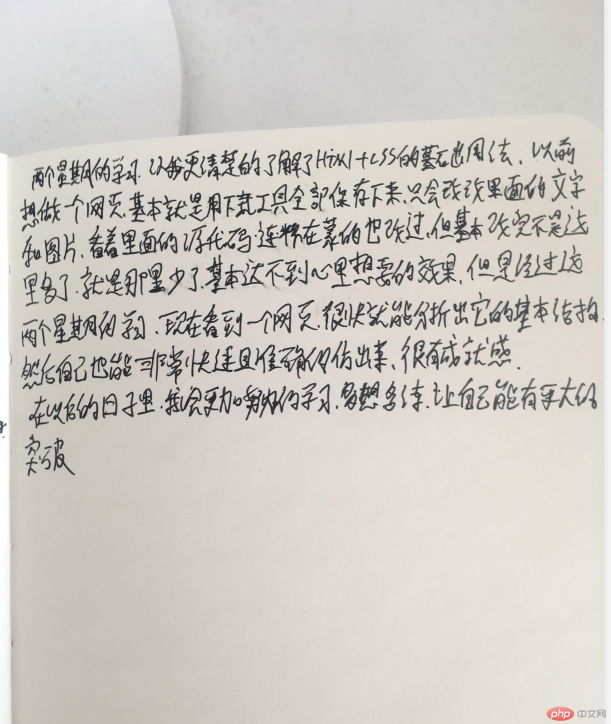 两个星期的学习.让我更清楚的了解了Html+css的基础用法.以前
想做一个网页.基本就是用下载工具全部保存下来.只会改改里面的文字
和图片.看着里面的源代码.连猜在蒙的也改过.但基本改完不是这
里多了.就是那里少了.基本达不到心里想要的效果.但是经过这
两个星期的学习.现在看到一个网页.很快就能分析出它的基本结构.
然后自己也能非常快速且准确的仿出来.很有成就感.
在以后的日子里.我会更加努力的学习.多想多练.让自己能有更大的
突破
php 中文网